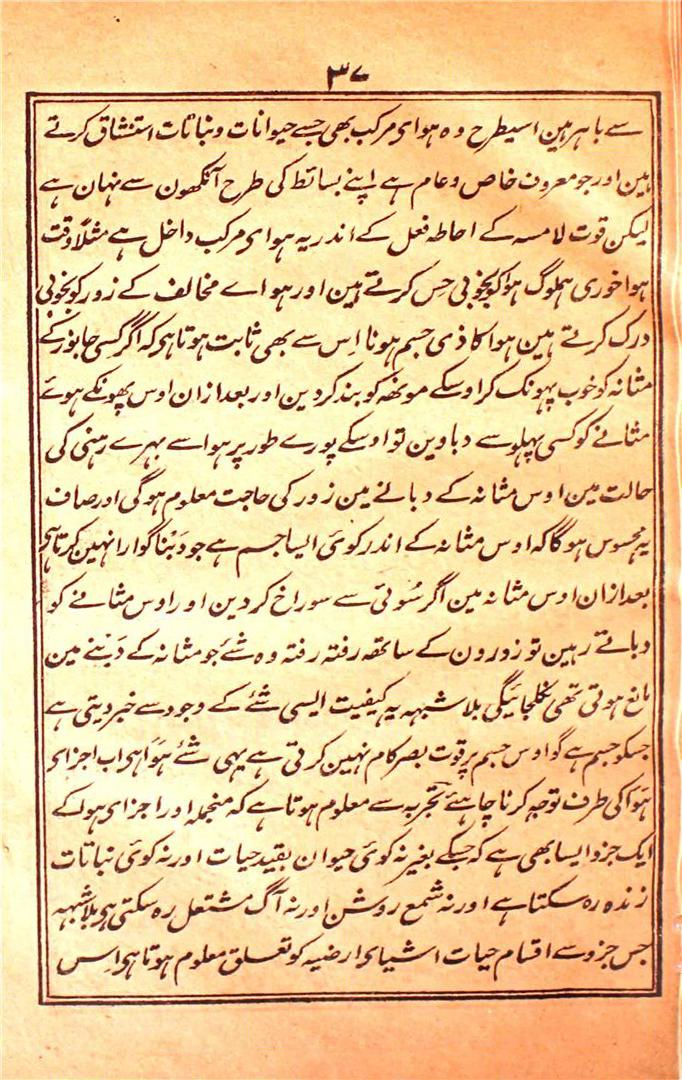 ۳۷
سے باہر ہین اسیطرح وہ ہوای مرکب بھی جسے حیوانات و نباتات استنشاق کرتے
ہین اور جو معروف خاص و عام ہے اپنے بسائط کی طرح آنکھون سے نہان ہے
لیکن قوت لامسہ کے احاطہ فعل کے اندر یہ ہوای مرکب داخل ہے مثلاً وقت
ہوا خوری ہملوگ ہوا کو بخوبی حِس کرتے ہین اور ہواے مخالف کے زور کو بخوبی
درک کرتے ہین ہوا کا ذی جسم ہونا اِس سے بھی ثابت ہوتا ہی کہ اگر کسی جانور کے
مثانہ کو خوب پہونک کر اوسکے مونھہ کو بند کردین اور بعد ازان اوس پھونکے ہوئے
مثانے کو کسی پہلو سے دباوین تو اوسکے پورے طور پر ہوا سے بہرے رہنی کی
حالت مین اوس مثانہ کے دبانے مین زور کی حاجت معلوم ہوگی اور صاف
یہ محسوس ہوگا کہ اوس مثانہ کے اندر کوئی ایسا جسم ہے جو دَبنا گوارا نہین کرتا ہی
بعد ازان اوس مثانہ مین اگر سُوئی سے سوراخ کردین اور اوس مثانے کو
دباتے رہین تو زورون کے ساتھہ رفتہ رفتہ وہ شئے جو مثانہ کے دَبنے مین
مانع ہوتی تھی نکلجائیگی بلا شبہہ یہ کیفیت ایسی شئے کے وجود سے خبر دیتی ہے
جسکو جسم ہے گو اوس جسم پر قوت بصر کام نہین کرتی ہے یہی شئے ہَوا ہی اب اجزای
ہَوا کی طرف توجہ کرنا چاہئے تجربہ سے معلوم ہوتا ہے کہ منجملہ اور اجزای ہوا کے
ایک جزو ایسا بھی ہے کہ جسکے بغیر نہ کوئی حیوان بقید حیات اور نہ کوئی نباتات
زندہ رہ سکتا ہے اور نہ شمع روشن اور نہ آگ مشتعل رہ سکتی ہی بلا شبہہ
جس جزو سے اقسام حیات اشیای ارضیہ کو تعلق معلوم ہوتا ہی اِس